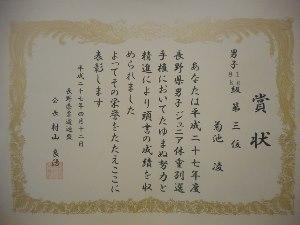 賞状
男子 81kg級 第三位
菊池 凌
あなたは平成二十七年度
長野県男子ジュニア体重別選
手権においてたゆまぬ努力と
精進により頭書の成績を収
められました
よってその栄誉をたたえここに
表彰します
平成二十七年四月十二日
長野県柔道連盟
会長 村山